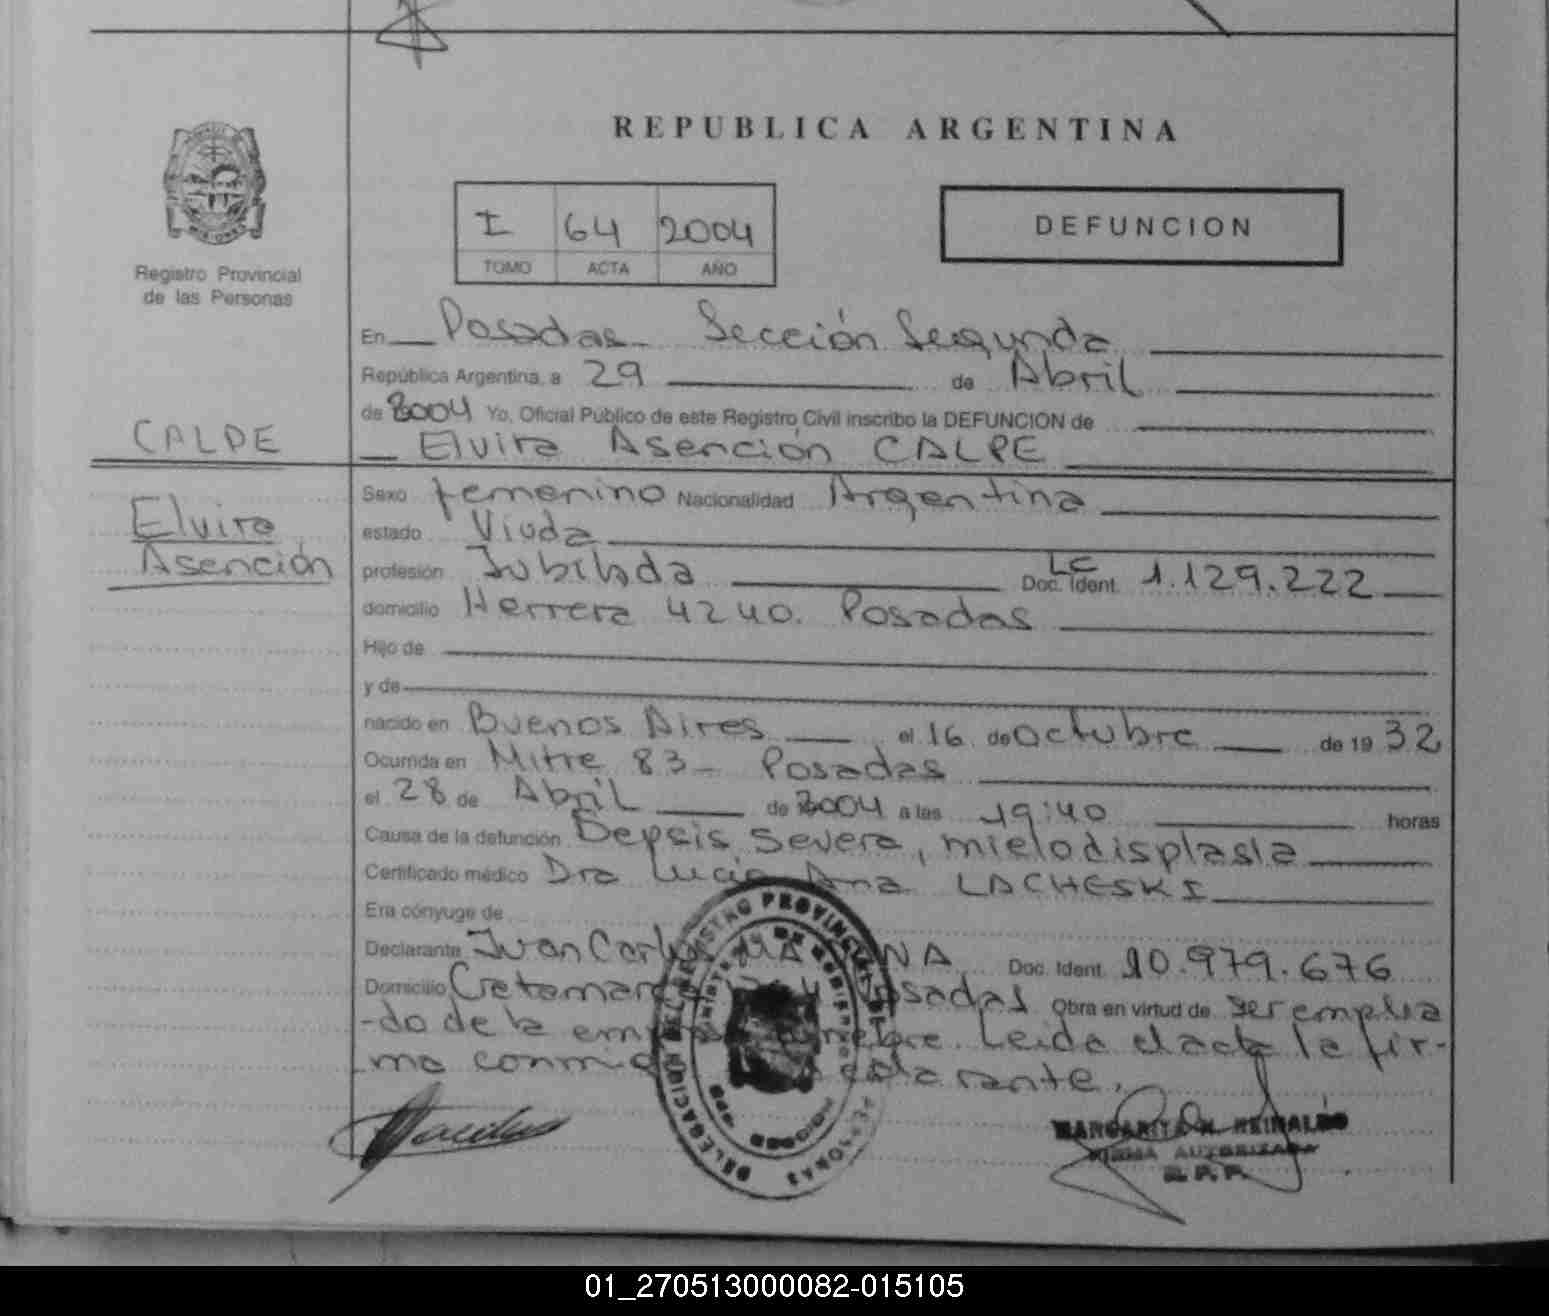 REPUBLICA ARGENTINA
I 64 2004
TOMO ACTA AÑO
DEFUNCION
Registro Provincial
de las Personas
En Posadas - Sección Segunda
República Argentina, a 29 de Abril
de 2004 Yo, Oficial Público de este Registro Civil inscribo la DEFUNCION de
CALPE
Elvira Asención CALPE
Elvira
Asención
Sexo femenino Nacionalidad Argentina
estado Viuda
profesión Jubilada Doc. Ident. LC 1.129.222
domicilio Herrera 4240. Posadas
Hijo de
y de
nacido en Buenos Aires el 16 de Octubre de 19 32
Ocurrida en Mitre 83 - Posadas
el 28 de Abril de 2004 a las 19:40 horas
Causa de la defunción Sepsis severa, mielodisplasia
Certificado médico Dra Lucia Ana LACHESKI
Era cónyuge de
Declarante Juan Carlos Doc. Ident. 10.979.676
Domicilio Posadas Obra en virtud de ser emplea
-do de la Leida el acta la fir-
-ma conmigo declarante.
MARGARITA
FIRMA AUTORIZADA
R. P. P.
DELEGACION DEL REGISTRO PROVINCIAL DE LAS PERSONAS
01_270513000082-015105